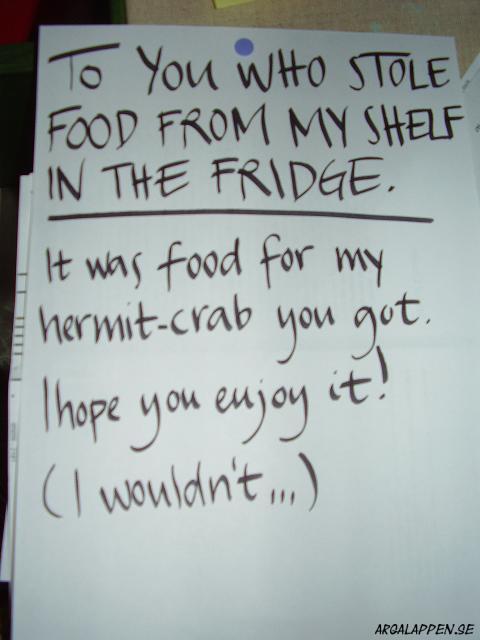 To You WHO STOLE
FOOD FROM MY SHELF
IN THE FRIDGE.
It was food for my
hermit-crab you got.
I hope you enjoy it!
(I wouldn't...)
ARGALAPPEN.SE